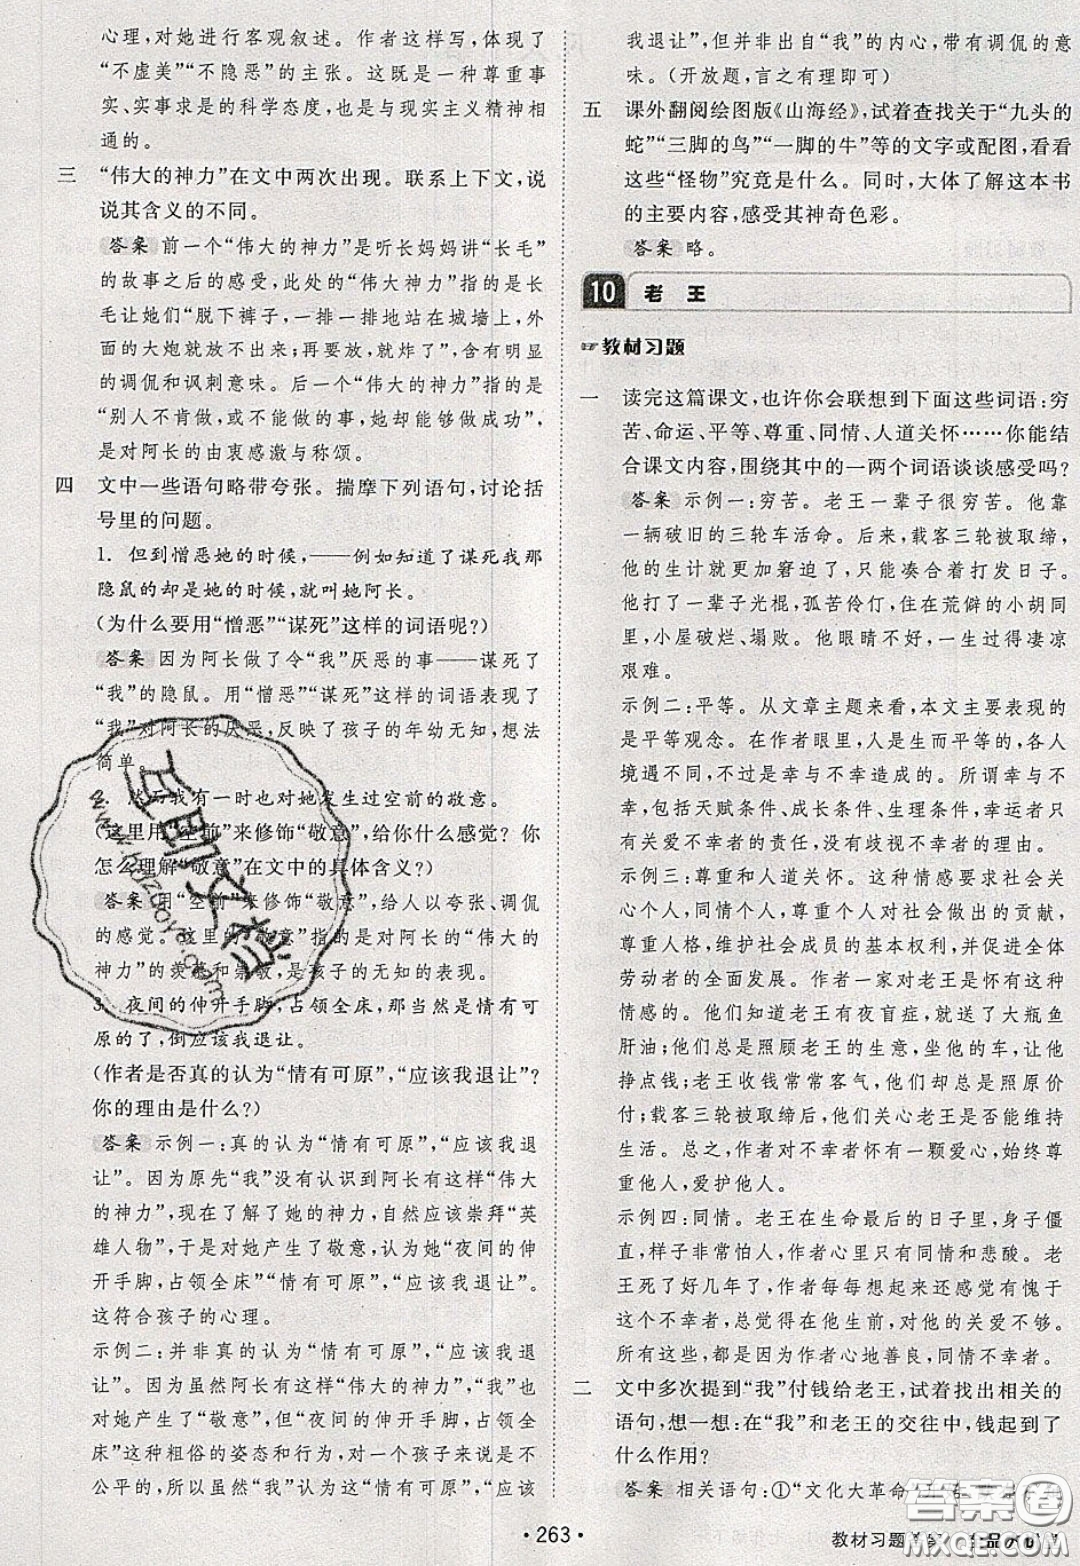 心理，对她进行客观叙述。作者这样写，体现了
“不虚美”“不隐恶”的主张。这既是一种尊重事
实、实事求是的科学态度，也是与现实主义精神相
通的。
三 “伟大的神力”在文中两次出现。联系上下文，说
说其含义的不同。
答案 前一个“伟大的神力”是听长妈妈讲“长毛”
的故事之后的感受，此处的“伟大的神力”指的是长
毛让她们“脱下裤子，一排一排地站在城墙上，外
面的大炮就放不出来；再要放，就炸了”，含有明显
的调侃和讽刺意味。后一个“伟大的神力”指的是
“别人不肯做，或不能做的事，她却能够做成功”，
是对阿长的由衷感激与称颂。
四 文中一些语句略带夸张。揣摩下列语句，讨论括
号里的问题。
1. 但到憎恶她的时候，——例如知道了谋死我那
隐鼠的却是她的时候，就叫她阿长。
(为什么要用“憎恶”“谋死”这样的词语呢？)
答案 因为阿长做了令“我”厌恶的事——谋死了
“我”的隐鼠。用“憎恶”“谋死”这样的词语表现了
“我”对阿长的厌恶，反映了孩子的年幼无知，想法
简单。
我有一时也对她发生过空前的敬意。
(这里用“空前”来修饰“敬意”，给你什么感觉？你
怎么理解“敬意”在文中的具体含义？)
答案 用“空前”来修饰“敬意”，给人以夸张、调侃
的感觉。这里的“敬意”指的是对阿长的“伟大的
神力”的羡慕和崇敬，是孩子的无知的表现。
3. 夜间的伸开手脚，占领全床，那当然是情有可
原的了，倒应该我退让。
(作者是否真的认为“情有可原”，“应该我退让”？
你的理由是什么？)
答案 示例一：真的认为“情有可原”，“应该我退
让”。因为原先“我”没有认识到阿长有这样“伟大
的神力”，现在了解了她的神力，自然应该崇拜“英
雄人物”，于是对她产生了敬意，认为她“夜间的伸
开手脚，占领全床”“情有可原”，“应该我退让”。
这符合孩子的心理。
示例二：并非真的认为“情有可原”，“应该我退
让”。虽然因阿长有这样“伟大的神力”，“我”也
对她产生了“敬意”，但“夜间的伸开手脚，占领全
床”这种粗俗的姿态和行为，对一个孩子来说是不
公平的，所以虽然“我”认为这“情有可原”，“应该
我退让”，但并非出自“我”的内心，有调侃的意
味。(开放题，言之有理即可)
五 课外翻阅绘图版《山海经》，试着查找关于“九头的
蛇”“三脚的鸟”“一脚的牛”等的文字或配图，看看
这些“怪物”究竟是什么。同时，大体了解这本书
的主要内容，感受其神奇色彩。
答案 略。
10 老 王
教材习题
一 读完这篇课文，也许你会联想到下面这些词语：穷
苦、命运、平等、尊重、同情、人道关怀……你能结
合课文内容，围绕其中的一两个词语谈谈感受吗？
答案 示例一：穷苦。老王一辈子很穷苦。他靠
一辆破旧的三轮车活命。后来，载客三轮被取缔，
他的生计就更加窘迫了，只能凑合着打发日子。
他打了一辈子光棍，孤苦伶仃，住在荒僻的小胡同
里，小屋破烂、塌败。他眼睛不好，一生过得凄凉
艰难。
示例二：平等。从文章主题来看，本文主要表现的
是平等观念。在作者眼里，人是生而平等的，各人
境遇不同，不过是幸与不幸造成的。所谓幸与不
幸，包括天赋条件、成长条件、生理条件，幸运者
只有关爱不幸者的责任，没有歧视不幸者的理由。
示例三：尊重和人道关怀。这种情感要求社会关
心个人，同情个人，尊重个人对社会做出的贡献，
尊重人格，维护社会成员的基本权利，并促进全体
劳动者的全面发展。作者一家对老王是怀有这种
情感的。他们知道老王有夜盲症，就送了大瓶鱼
肝油；他们总是照顾老王的生意，坐他的车，让他
挣点钱；老王收钱常常客气，他们总是照原价付
给；载客三轮被取缔后，他们关心老王是否能维持
生活。总之，作者对不幸者怀有一颗爱心，关心
人，爱护人。
示例四：同情。老王在生命最后的日子里，身子僵
直，样子非常怕人，作者心里只有同情和悲酸。老
王死了好几年了，作者每每想起来还感觉有愧于
他，总觉得在他生前，对他的关爱不够。
所有这些，都出于作者心地善良，同情不幸者。
二 文中多次提到“我”付钱给老王，试着找出相关的
语句，想一想：在“我”和老王的交往中，钱起到了
什么作用？
答案 相关语句：①“文化大革命
· 263 ·
教材习题答案
答案圈
www.huzuoye.com